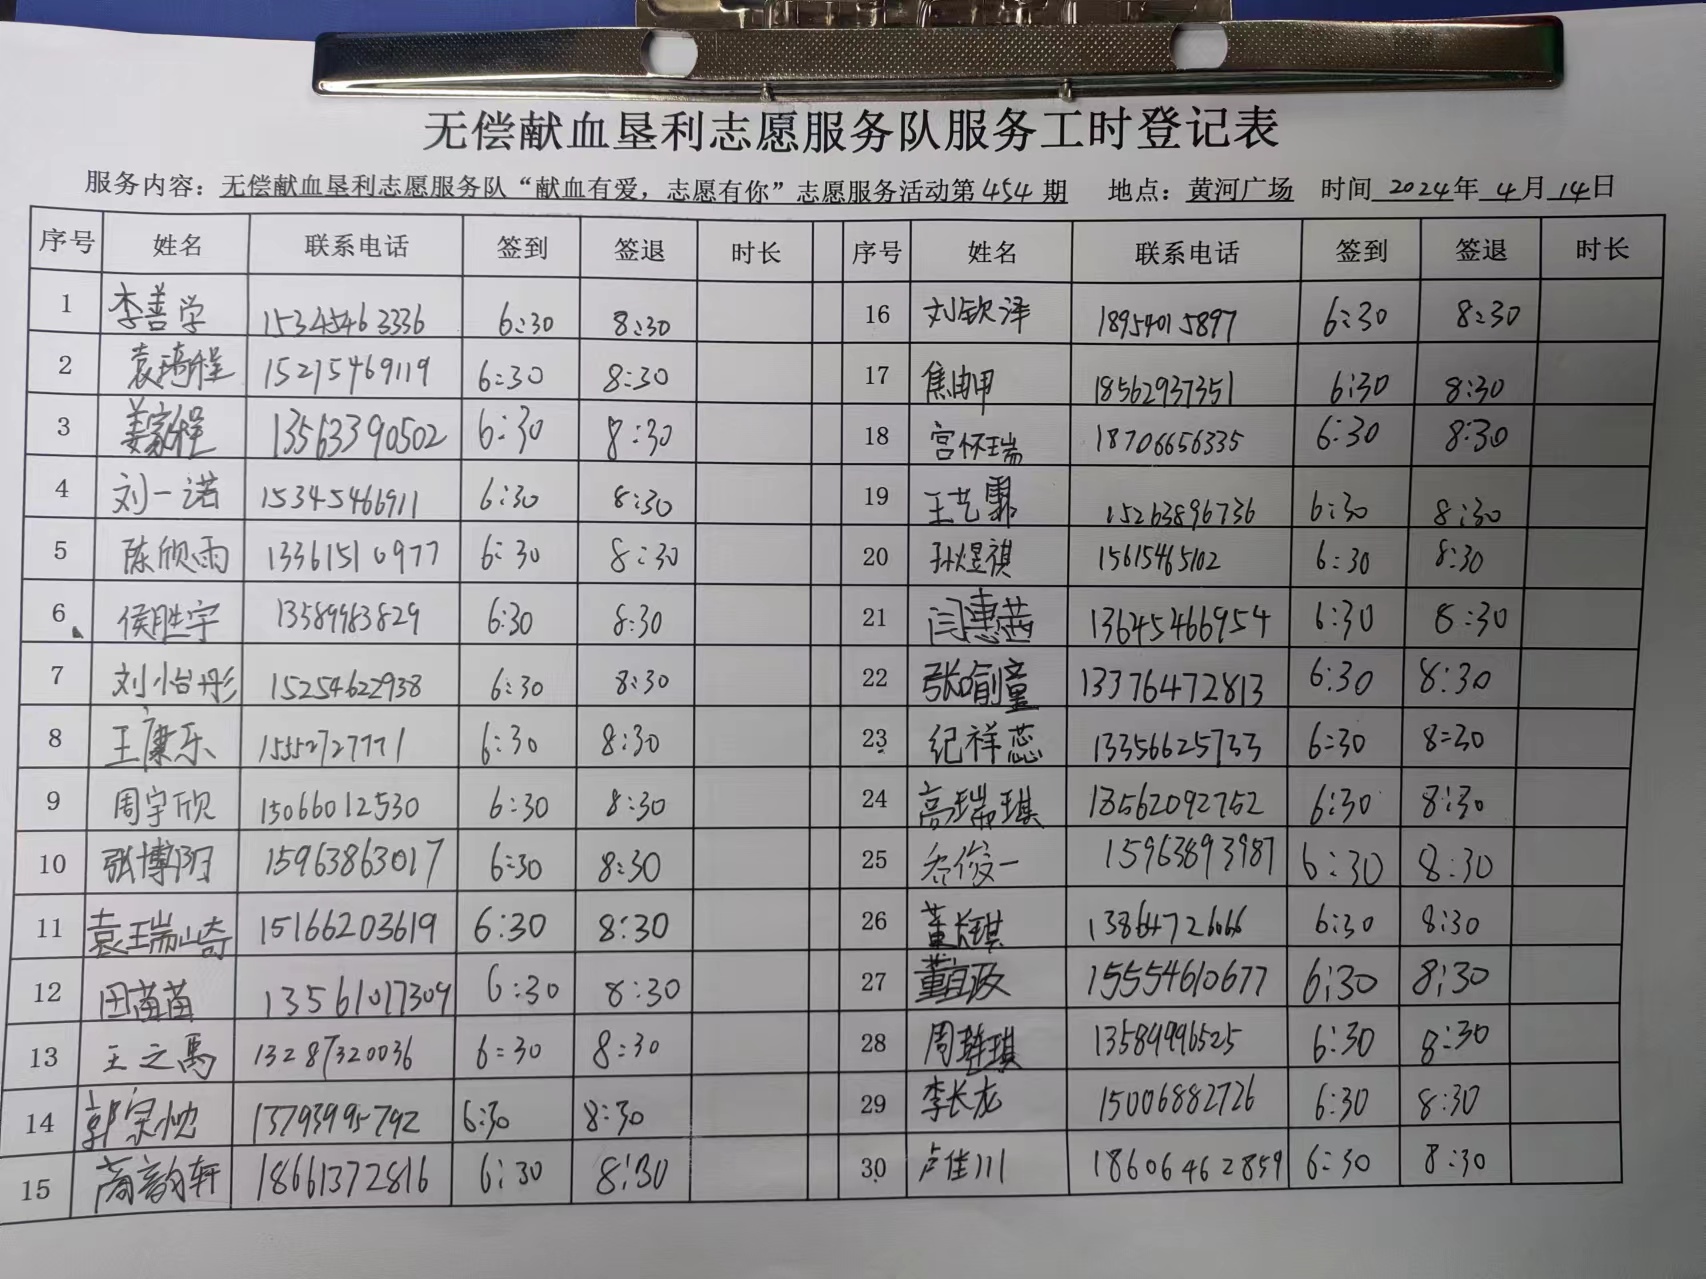 无偿献血垦利志愿服务队服务工时登记表
服务内容：无偿献血垦利志愿服务队“献血有爱，志愿有你”志愿服务活动第454期 地点：黄河广场 时间 2024年 4月 14日
序号 姓名 联系电话 签到 签退 时长 序号 姓名 联系电话 签到 签退 时长
1 李善学 15345463336 6:30 8:30 16 刘钦泽 18954015897 6:30 8:30
2 袁琦程 15215469119 6:30 8:30 17 焦 18562937351 6:30 8:30
3 姜家程 13563390502 6:30 8:30 18 宫怀瑞 18706656335 6:30 8:30
4 刘一诺 15345466911 6:30 8:30 19 王艺霏 15263896736 6:30 8:30
5 陈欣雨 13361510977 6:30 8:30 20 孙煜祺 15615465102 6:30 8:30
6 侯胜宇 13589963829 6:30 8:30 21 闫惠茜 13645466954 6:30 8:30
7 刘怡彤 15254622938 6:30 8:30 22 张喻童 13376472813 6:30 8:30
8 王康乐 15552727771 6:30 8:30 23 纪祥蕊 13356625733 6:30 8:30
9 周宇欣 15066012530 6:30 8:30 24 高瑞琪 18562092752 6:30 8:30
10 张博阳 15963863017 6:30 8:30 25 俊一 15963893987 6:30 8:30
11 袁瑞崎 15166203619 6:30 8:30 26 董长琪 6:30 8:30
12 田苗苗 13561017309 6:30 8:30 27 董 15554610677 6:30 8:30
13 王之禹 13287320036 6:30 8:30 28 周琪 13589996525 6:30 8:30
14 郭宗 13793995792 6:30 8:30 29 李长龙 15006882726 6:30 8:30
15 韵轩 18661372816 6:30 8:30 30 卢佳川 18606462859 6:30 8:30